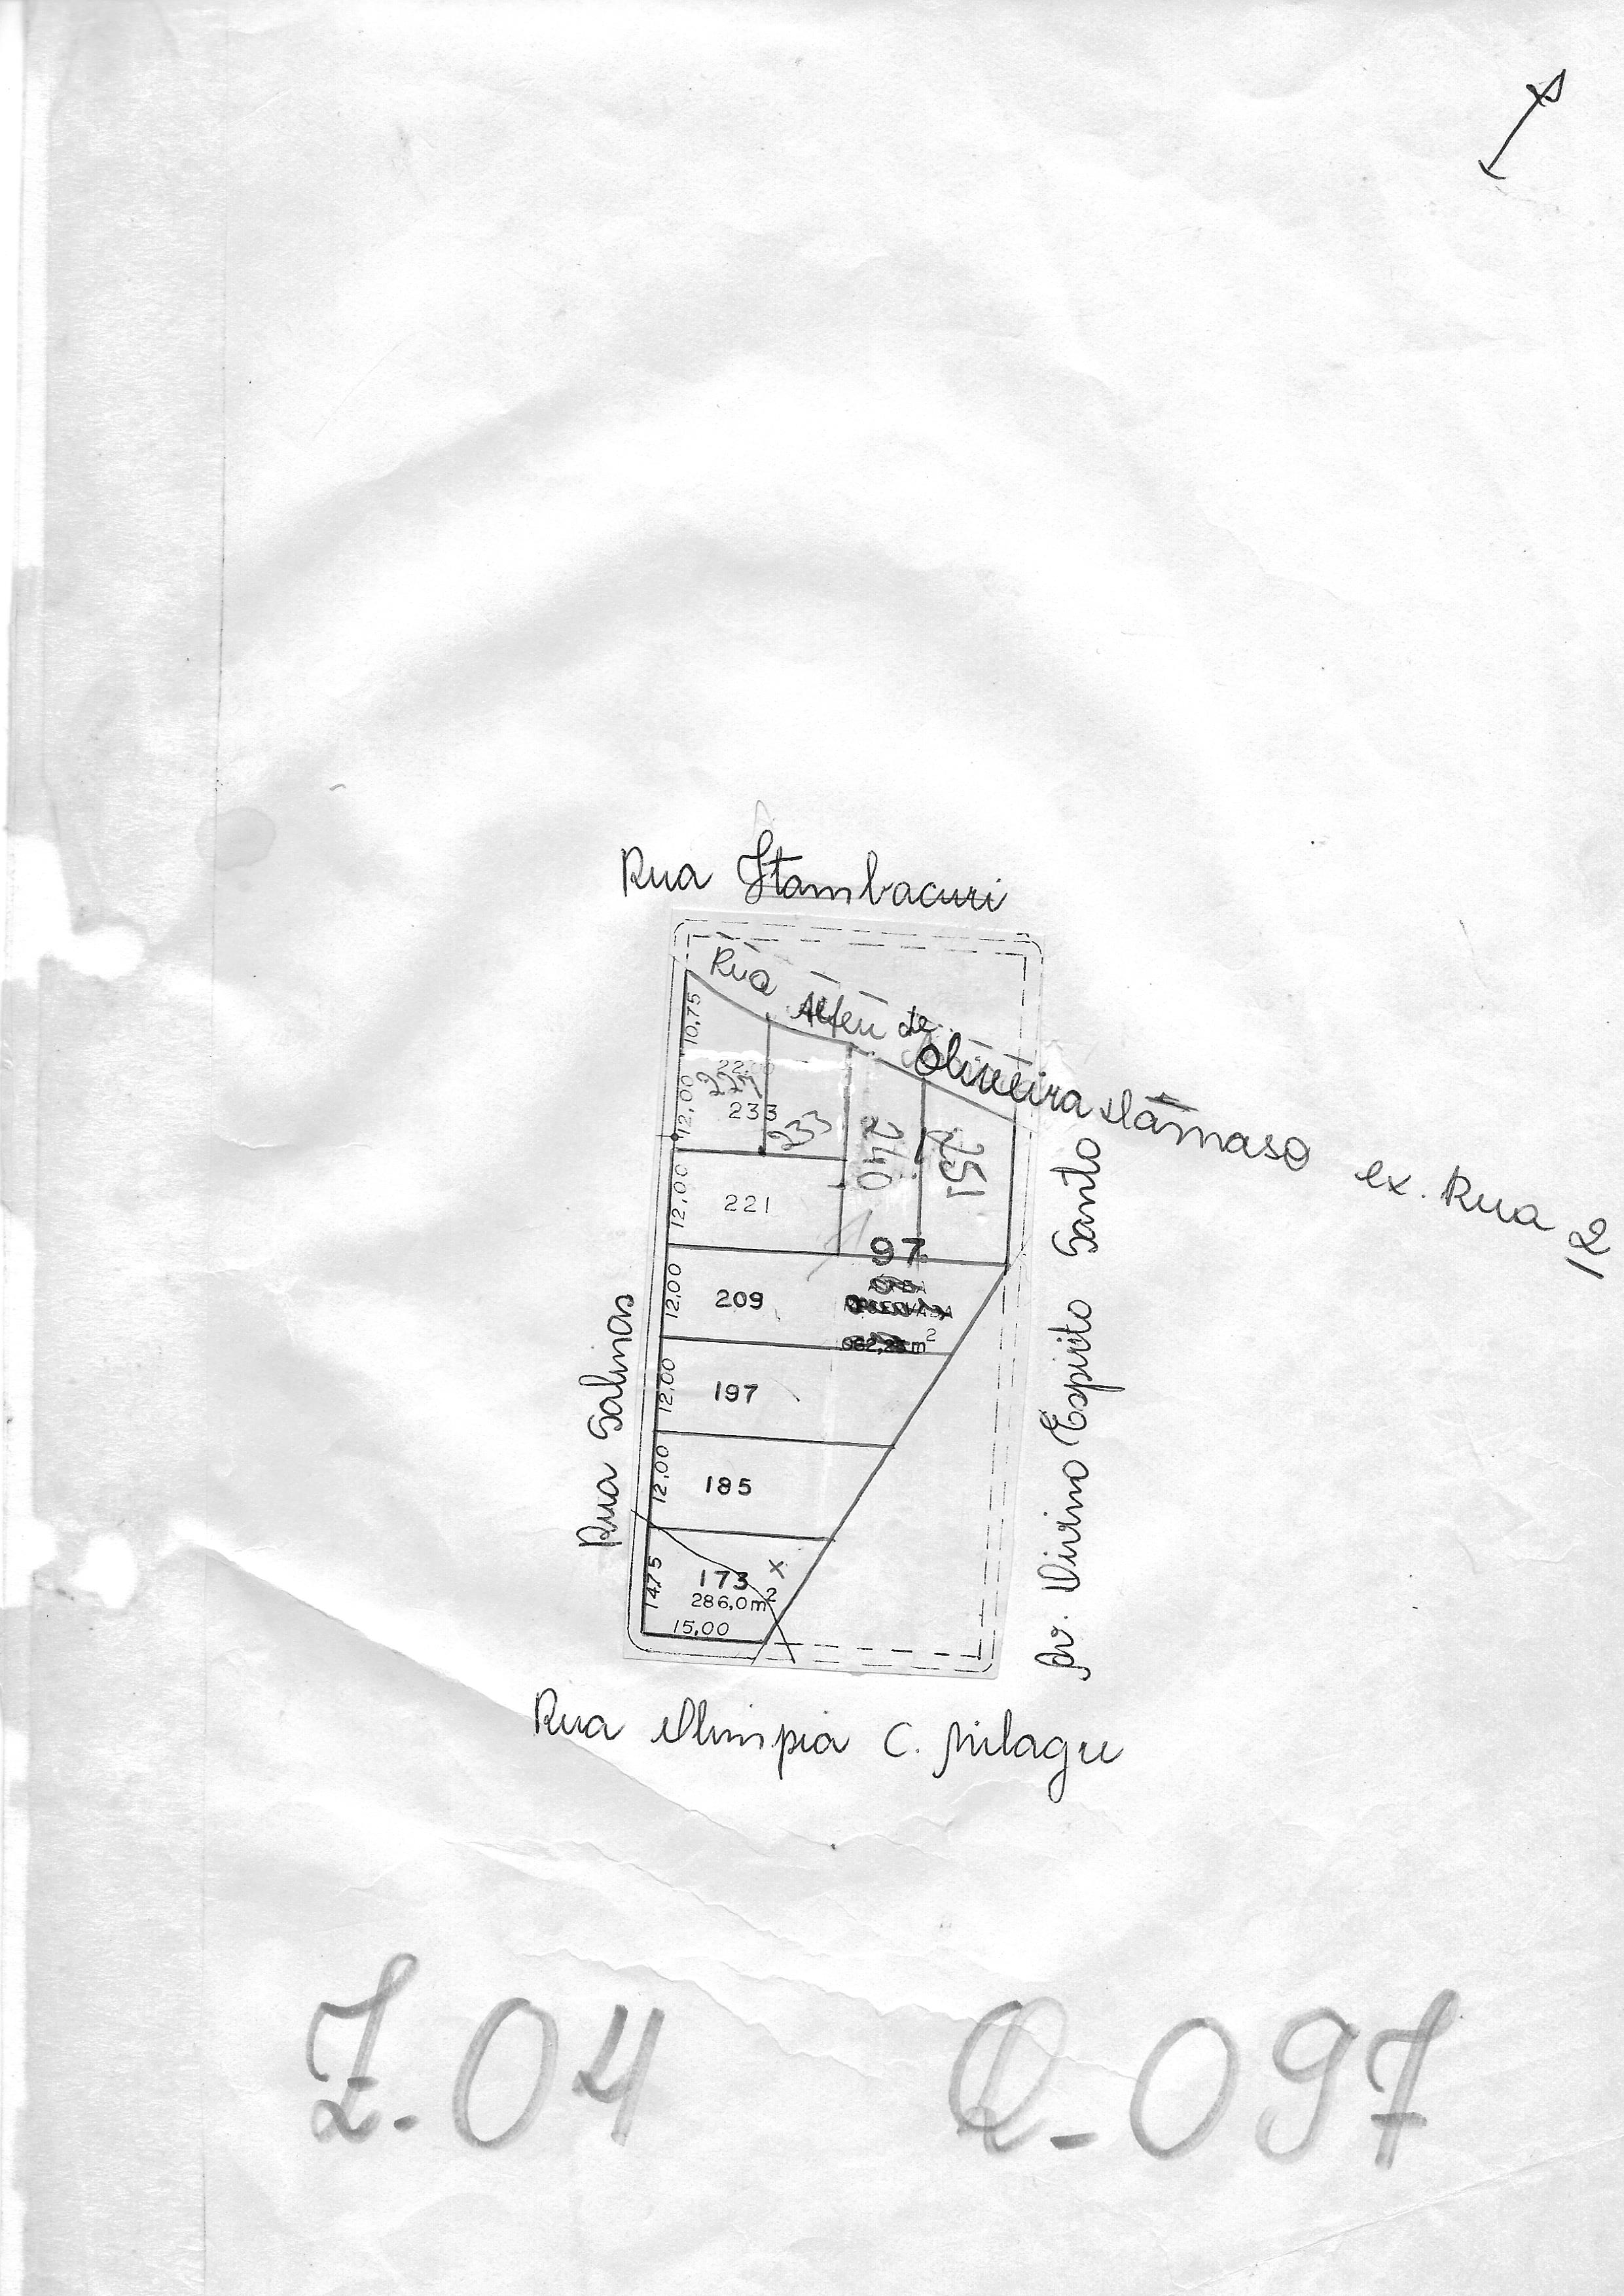 Rua Itambacuri
Rua Alfeu de Oliveira Dâmaso ex. Rua 2
10,75
12,00
227
233
233
240
251
12,00
221
97
12,00
209
m²
12,00
197
12,00
185
14,75
173 X
286,0m²
15,00
Rua Salinas
Av. Divino Espirito Santo
Rua Olimpia C. Milagre
Z-04 Q-097